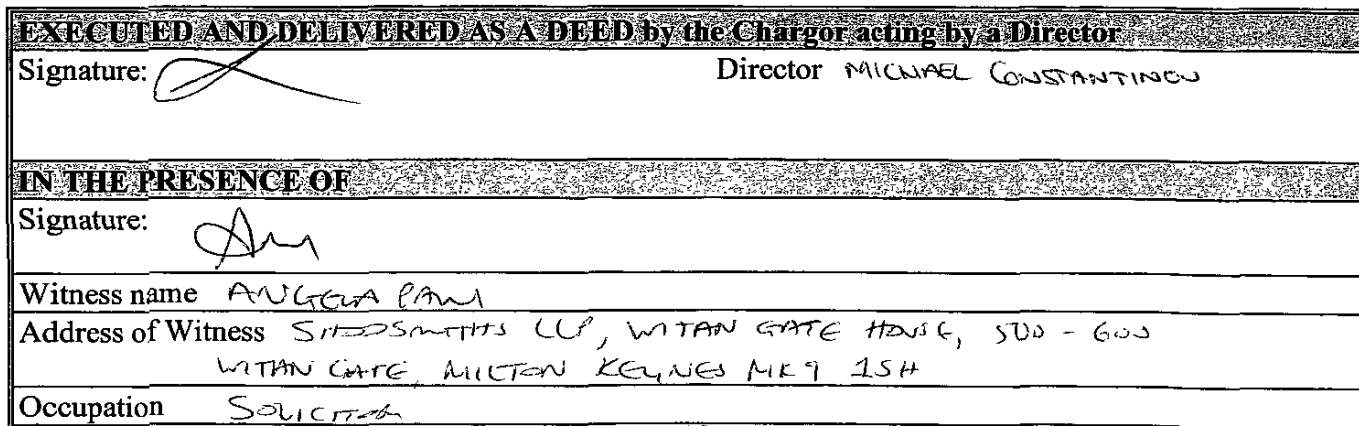 EXECUTED AND DELIVERED AS A DEED by the Chargor acting by a Director
Signature: Director MICHAEL CONSTANTINOU
IN THE PRESENCE OF
Signature:
Witness name ANGELA
Address of Witness SHOOSMITHS LLP, WITAN GATE HOUSE, 500 - 600
WITAN GATE, MILTON KEYNES MK9 1SH
Occupation SOLICITOR